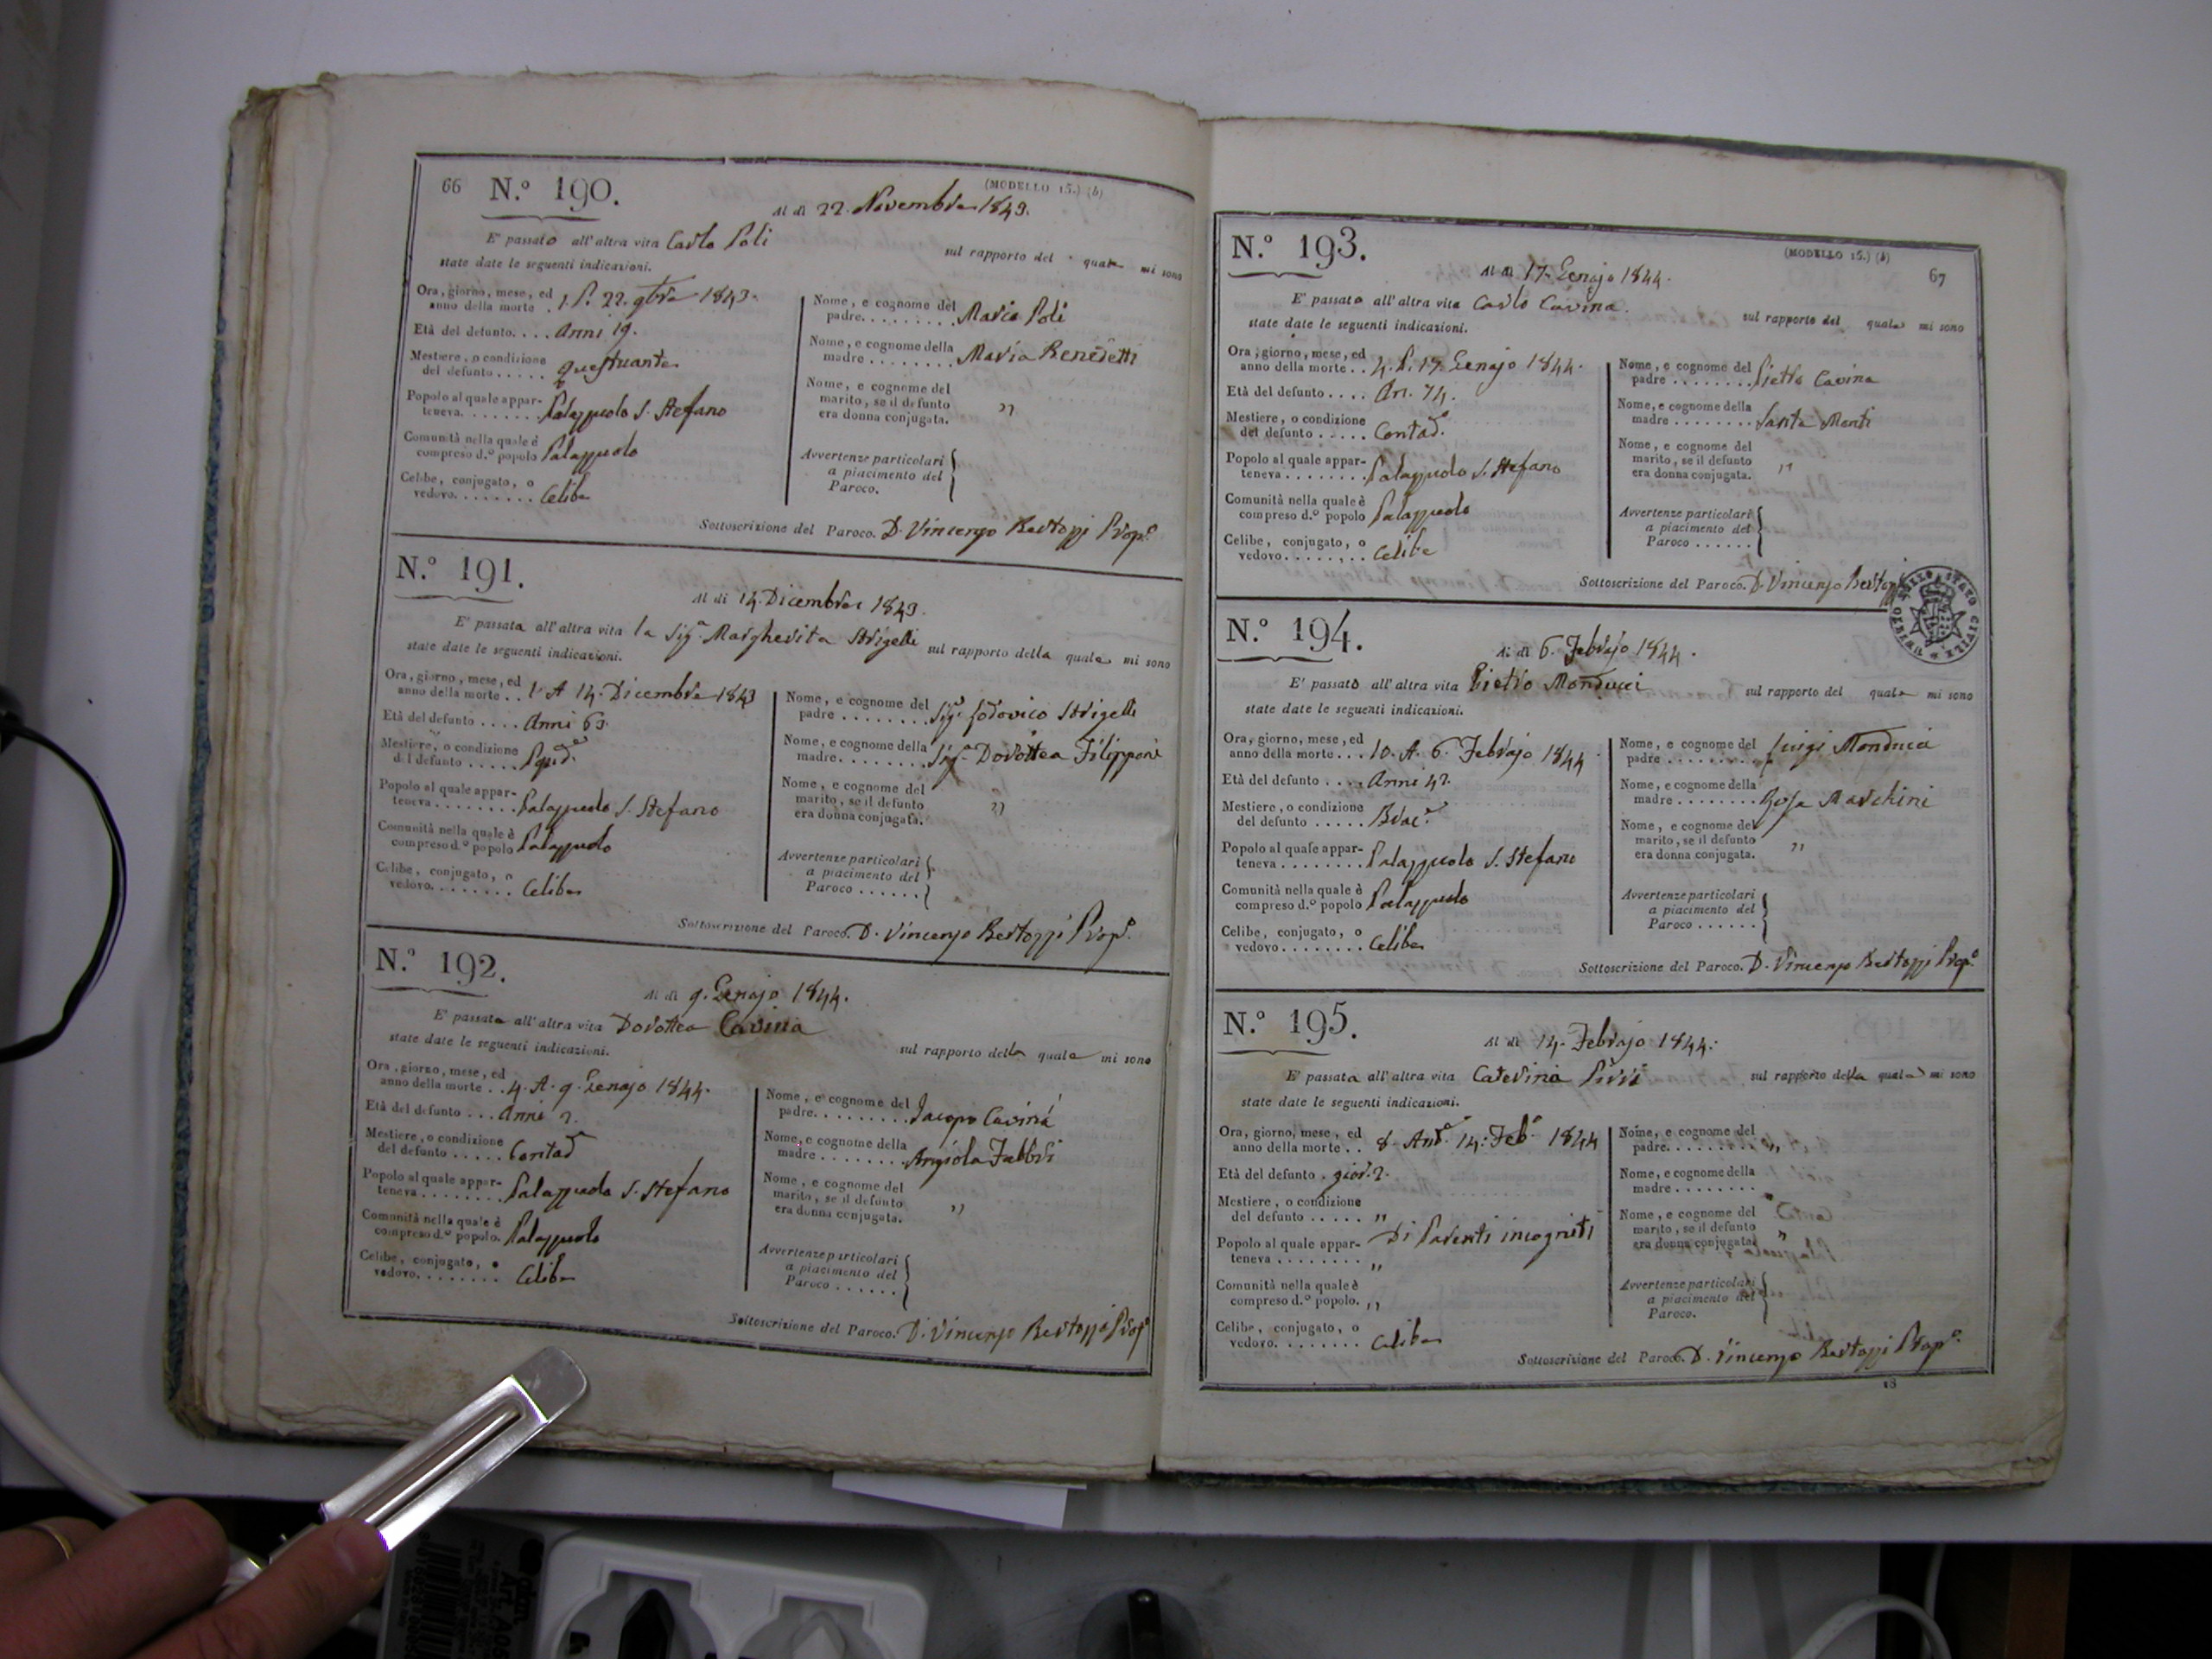 66 N.º 190. (MODELLO 15.) (b)
Al dì 22. Novembre 1843.
E' passato all'altra vita Carlo Poli
sul rapporto del quale mi sono
state date le seguenti indicazioni.
Ora, giorno, mese, ed
anno della morte . 1. P. 22. 9bre 1843.
Età del defunto.... Anni 19.
Mestiere, o condizione
del defunto ..... questuante
Popolo al quale appar-
teneva........ Palazzuolo S. Stefano
Comunità nella quale è
compreso d.º popolo Palazzuolo
Celibe, conjugato, o
vedovo........ Celibe
Nome, e cognome del
padre......... Marco Poli
Nome, e cognome della
madre ........ Maria Benedetti
Nome, e cognome del
marito, se il defunto
era donna conjugata. „
Avvertenze particolari
a piacimento del
Paroco.
Sottoscrizione del Paroco. D. Vincenzo Bertozzi Prop.º
N.º 191.
Al dì 14. Dicembre 1843.
E' passata all'altra vita la Sig.ª Margherita Strigelli sul rapporto della quale mi sono
state date le seguenti indicazioni.
Ora, giorno, mese, ed
anno della morte . . 1 A 14. Dicembre 1843
Età del defunto .... Anni 63.
Mestiere, o condizione
del defunto .....
Popolo al quale appar-
teneva........ Palazzuolo S. Stefano
Comunità nella quale è
compreso d.º popolo Palazzuolo
Celibe, conjugato, o
vedovo........ Celibe
Nome, e cognome del
padre ........ Sig.r Lodovico Strigelli
Nome, e cognome della
madre......... Sig.ª Dorottea Filipponi
Nome, e cognome del
marito, se il defunto „
era donna conjugata.
Avvertenze particolari
a piacimento del
Paroco ......
Sottoscrizione del Paroco. D. Vincenzo Bertozzi Prop.º
N.º 192.
Al dì 9. Genajo 1844.
E' passata all'altra vita Dorottea Cavina
sul rapporto della quale mi sono
state date le seguenti indicazioni.
Ora, giorno, mese, ed
anno della morte . . 4. A. 9. Genajo 1844.
Età del defunto ... Anni 2.
Mestiere, o condizione
del defunto ..... Contad
Popolo al quale appar-
teneva........ Palazzuolo S. Stefano
Comunità nella quale è
compreso d.º popolo. Palazzuolo
Celibe, conjugato, o
vedovo........ Celibe
Nome, e cognome del
padre......... Jacopo Cavina
Nome, e cognome della
madre ........ Angiola Fabbri
Nome, e cognome del
marito, se il defunto „
era donna conjugata.
Avvertenze particolari
a piacimento del
Paroco ......
Sottoscrizione del Paroco. D. Vincenzo Bertozzi Prop.º
N.º 193. (MODELLO 15.) (b) 67
Al dì 17. Genajo 1844.
E' passato all'altra vita Carlo Cavina.
sul rapporto del quale mi sono
state date le seguenti indicazioni.
Ora, giorno, mese, ed
anno della morte . . 4. P. 17. Genajo 1844.
Età del defunto .... An. 74.
Mestiere, o condizione
del defunto ..... Contad.
Popolo al quale appar-
teneva ........ Palazzuolo S. Stefano
Comunità nella quale è
compreso d.º popolo Palazzuolo
Celibe, conjugato, o
vedovo........ Celibe
Nome, e cognome del
padre ........ Pietro Cavina
Nome, e cognome della
madre ........ Santa Menti
Nome, e cognome del
marito, se il defunto „
era donna conjugata.
Avvertenze particolari
a piacimento del
Paroco ......
Sottoscrizione del Paroco. D. Vincenzo Bertozzi
STATO CIVILE
N.º 194.
Al dì 6. Febrajo 1844.
E' passato all'altra vita Pietro Monducci sul rapporto del quale mi sono
state date le seguenti indicazioni.
Ora, giorno, mese, ed
anno della morte . . 10. A. 6. Febrajo 1844
Età del defunto .... Anni 42.
Mestiere, o condizione
del defunto ..... Brac.
Popolo al quale appar-
teneva ........ Palazzuolo S. Stefano
Comunità nella quale è
compreso d.º popolo Palazzuolo
Celibe, conjugato, o
vedovo........ Celibe
Nome, e cognome del
padre ........ Luigi Monducci
Nome, e cognome della
madre ........ Rosa Marchini
Nome, e cognome del
marito, se il defunto „
era donna conjugata.
Avvertenze particolari
a piacimento del
Paroco ......
Sottoscrizione del Paroco. D. Vincenzo Bertozzi Prop.º
N.º 195.
Al dì 14. Febrajo 1844.
E' passata all'altra vita Caterina Pirri sul rapporto della quale mi sono
state date le seguenti indicazioni.
Ora, giorno, mese, ed
anno della morte . . 8. Ant. 14. Feb. 1844
Età del defunto . gior. 2.
Mestiere, o condizione
del defunto ..... „
Di Parenti incogniti
Popolo al quale appar-
teneva ........ „
Comunità nella quale è
compreso d.º popolo. „
Celibe, conjugato, o
vedovo........ Celibe
Nome, e cognome del
padre......... „
Nome, e cognome della
madre ........ „
Nome, e cognome del
marito, se il defunto „
era donna conjugata.
Avvertenze particolari
a piacimento del
Paroco.
Sottoscrizione del Paroco. D. Vincenzo Bertozzi Prop.º
18